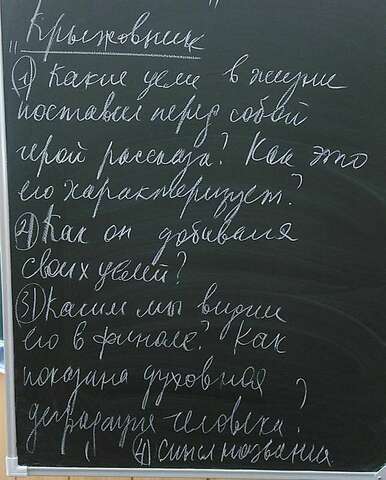 "Крыжовник"
① Какие цели в жизни
поставил перед собой
герой рассказа? Как это
его характеризует?
② Как он добивался
своих целей?
③ Каким мы видим
его в финале? Как
показана духовная
деградация человека?
④ Смысл названия